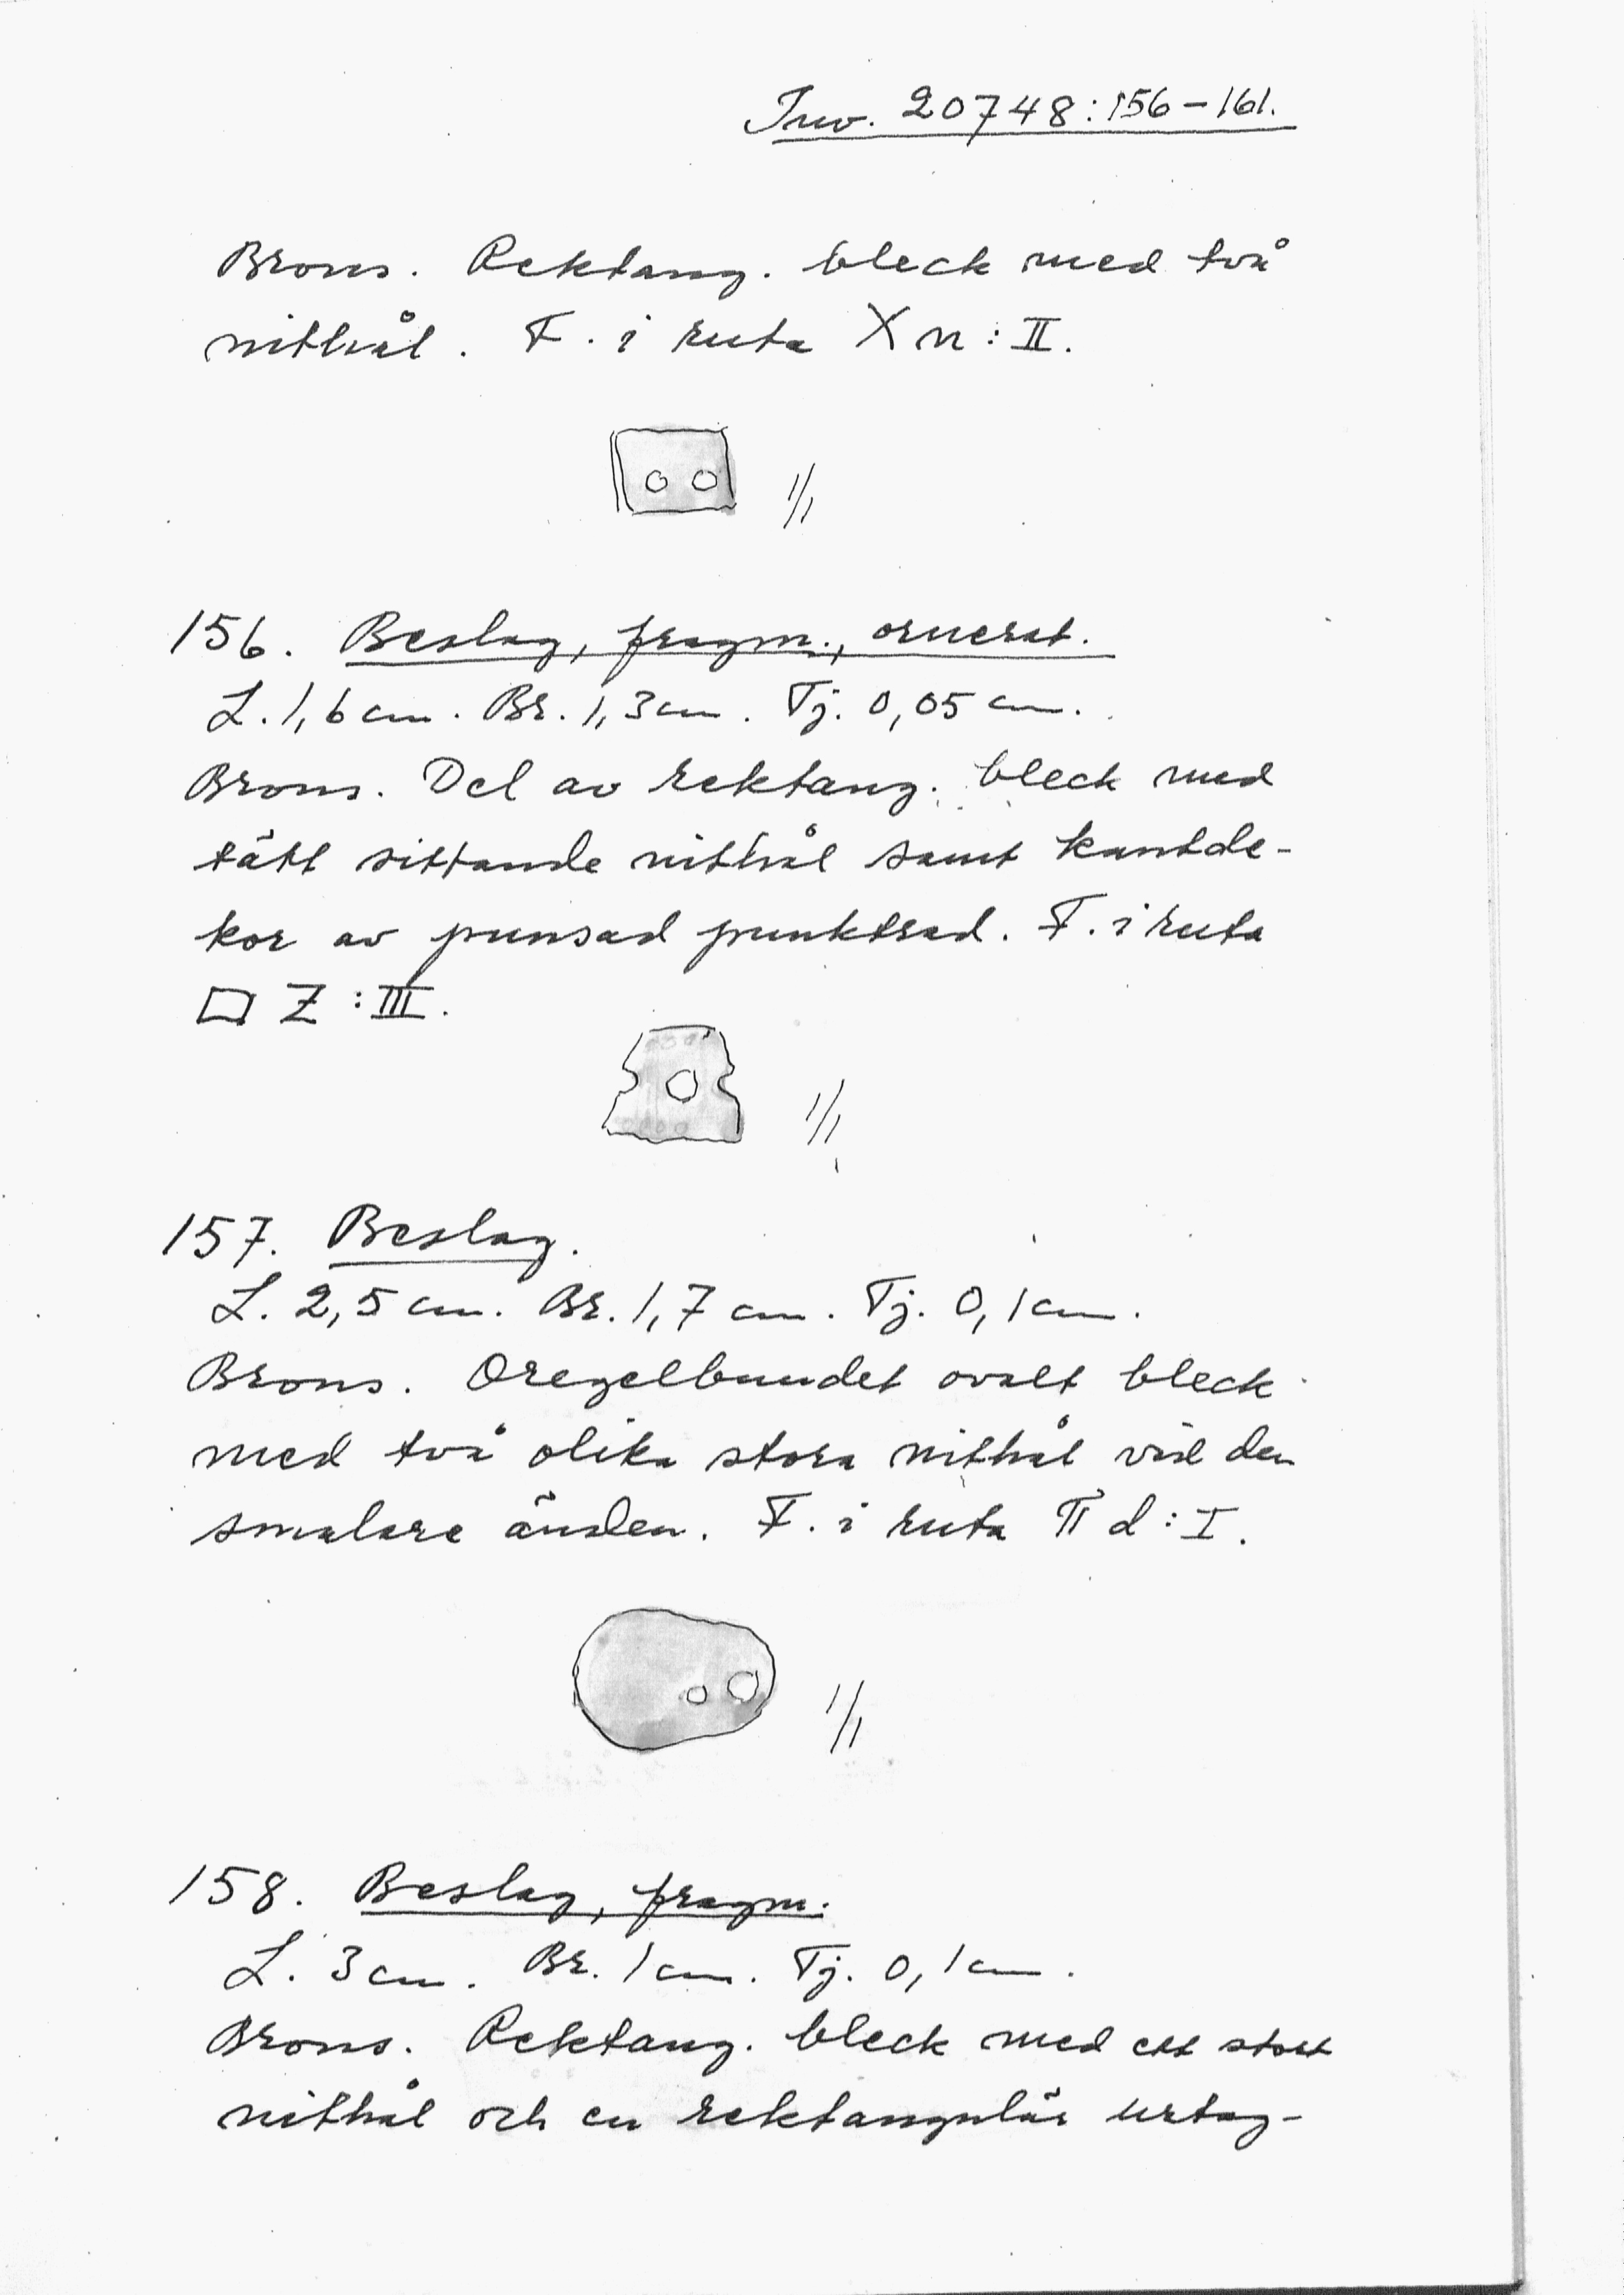 Inv. 20748:156-161.
Brons. Rektang. bleck med två
nithål. F. i ruta X n:II.
1/1
156. Beslag, fragm., ornerat.
L. 1,6 cm. Br. 1,3 cm. Tj. 0,05 cm.
Brons. Del av rektang. bleck med
tätt sittande nithål samt kantde-
kor av punsad punktrad. F. i ruta
□ Z:III.
1/1
157. Beslag.
L. 2,5 cm. Br. 1,7 cm. Tj. 0,1 cm.
Brons. Oregelbundet ovalt bleck
med två olika stora nithål vid den
smalare änden. F. i ruta π d:I.
1/1
158. Beslag, fragm.
L. 3 cm. Br. 1 cm. Tj. 0,1 cm.
Brons. Rektang. bleck med ett stort
nithål och en rektangulär urtag-